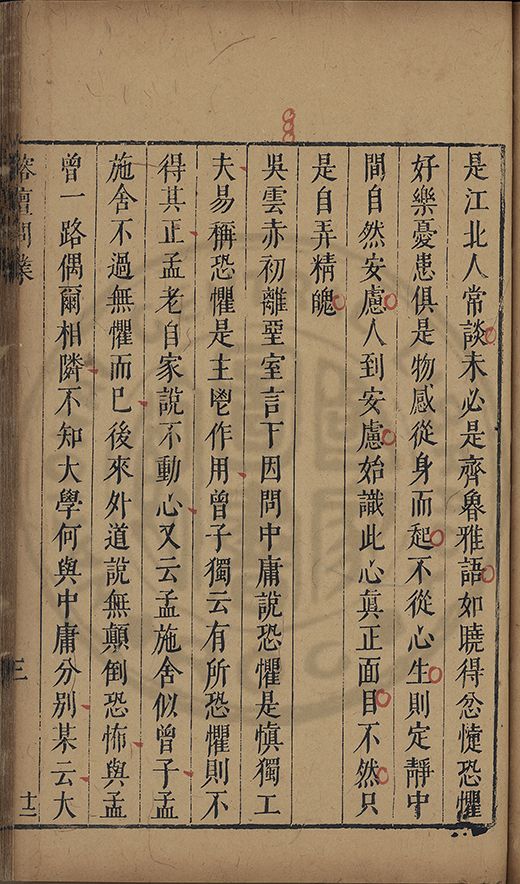 是江北人常談未必是齊魯雅語如曉得忿懥恐懼
好樂憂患俱是物感從身而起不從心生則定靜中
間自然安慮人到安慮始識此心真正面目不然只
是自弄精魄
吳雲赤初離堊室言下因問中庸說恐懼是慎獨工
夫易稱恐懼是主鬯作用曾子獨云有所恐懼則不
得其正孟老自家說不動心又云孟施舍似曾子孟
施舍不過無懼而已後來外道說無顛倒恐怖與孟
曾一路偶爾相隣不知大學何與中庸分別某云大
榕壇問業
三
十二